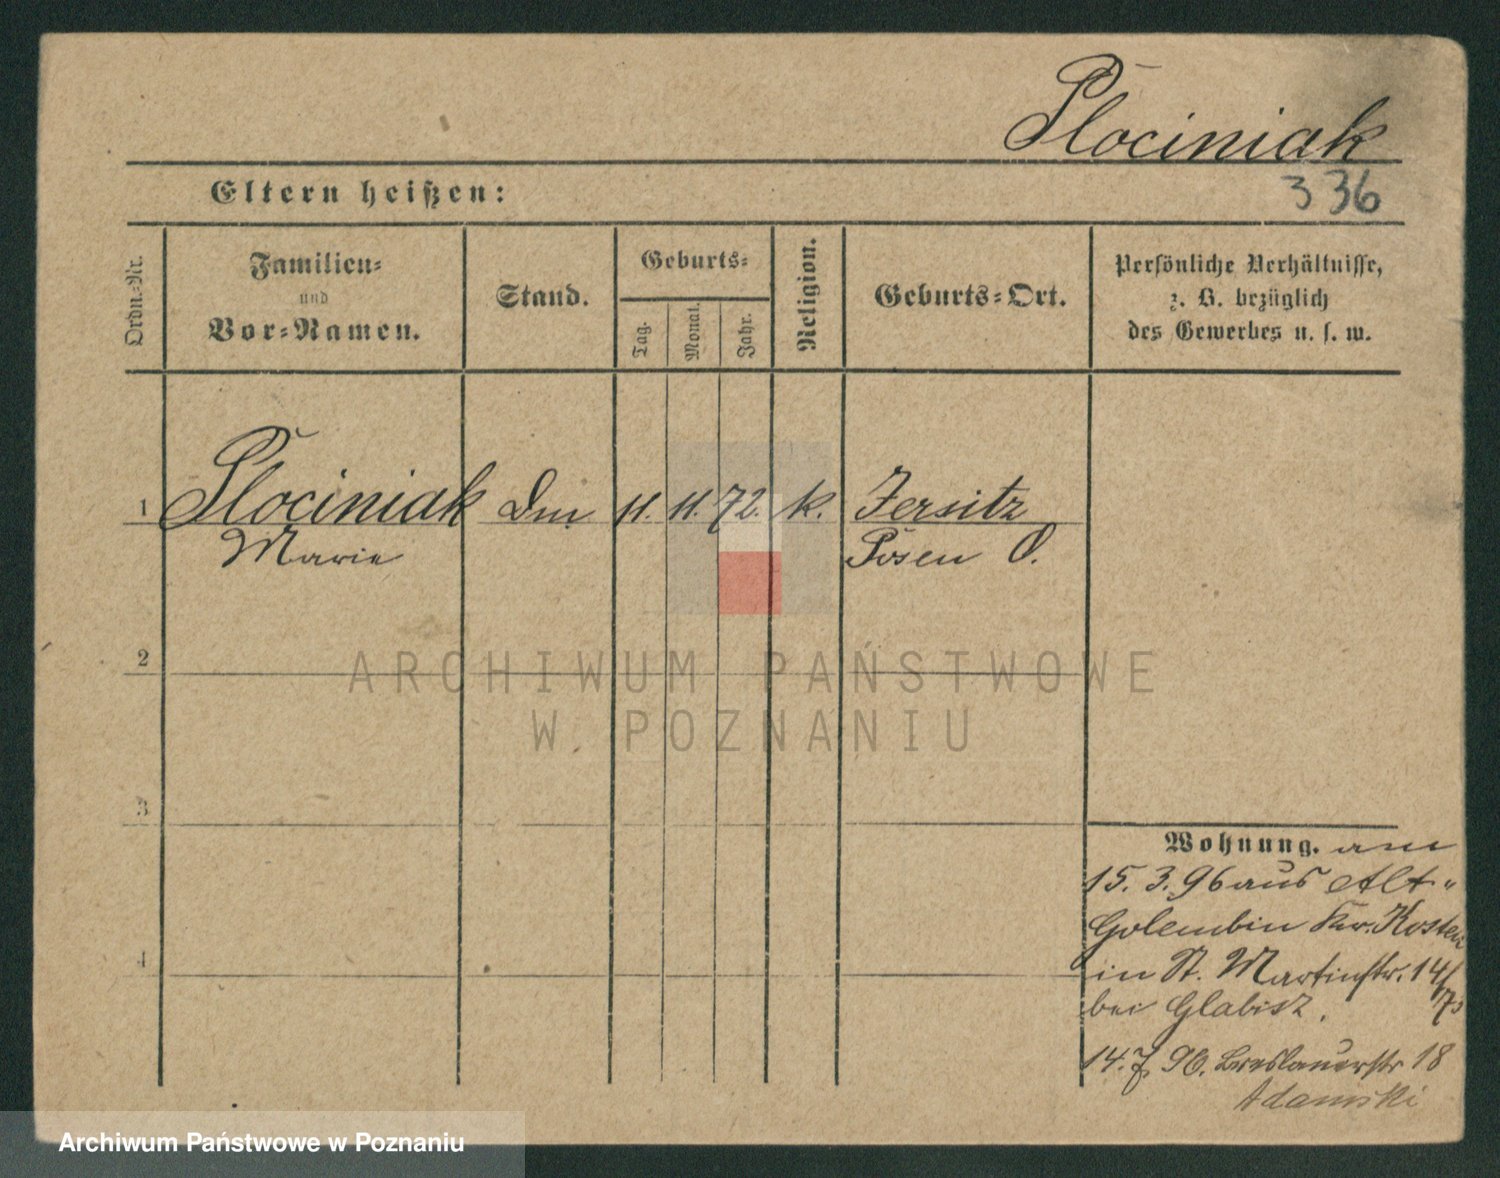 Plociniak
336
Eltern heißen:
Ordn.-Nr.
Familien-
und
Vor-Namen.
Stand.
Geburts-
Tag.
Monat.
Jahr.
Religion.
Geburts-Ort.
Persönliche Verhältnisse,
z. B. bezüglich
des Gewerbes u. s. w.
1 Plociniak 11. 11. 72. k. Jersitz
Marie Posen O.
2
ARCHIWUM PAŃSTWOWE
W POZNANIU
3
Wohnung. am
15. 3. 96 aus Alt-
Golembin Kr. Kosten
4
in St. Martinstr. 14/
bei Glabisz.
14. 7. 96. Breslauerstr 18
Adamski
Archiwum Państwowe w Poznaniu